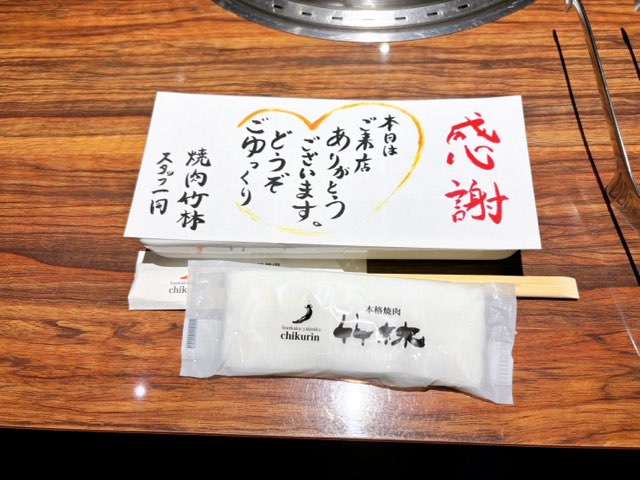 感謝
本日は
ご来店
ありがとう
ございます。
どうぞ
ごゆっくり
焼肉竹林
スタッフ一同
本格焼肉
竹林
honkaku yakiniku
chikurin